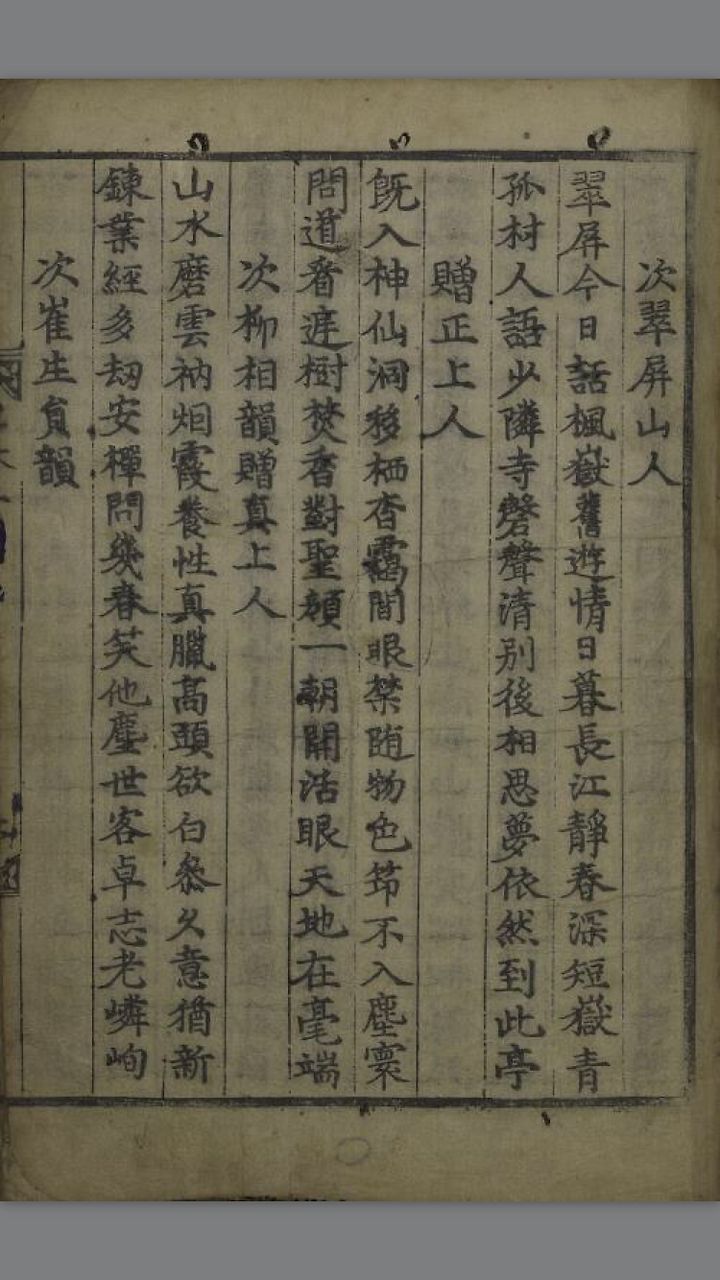 次翠屏山人
翠屏今日話楓嶽舊遊情日暮長江靜春深短嶽青
孤村人語少隣寺磬聲清别後相思夢依然到此亭
贈正上人
旣入神仙洞移栖杳靄間眼禁随物色笻不入塵寰
問道春逆樹焚香對聖顔一朝開活眼天地在毫端
次柳相韻贈真上人
山水磨雲衲烟霞養性真臘高頭欲白叅久意猶新
鍊業經多刼安禪問幾春笑他塵世客卓志老嶙峋
次崔生員韻